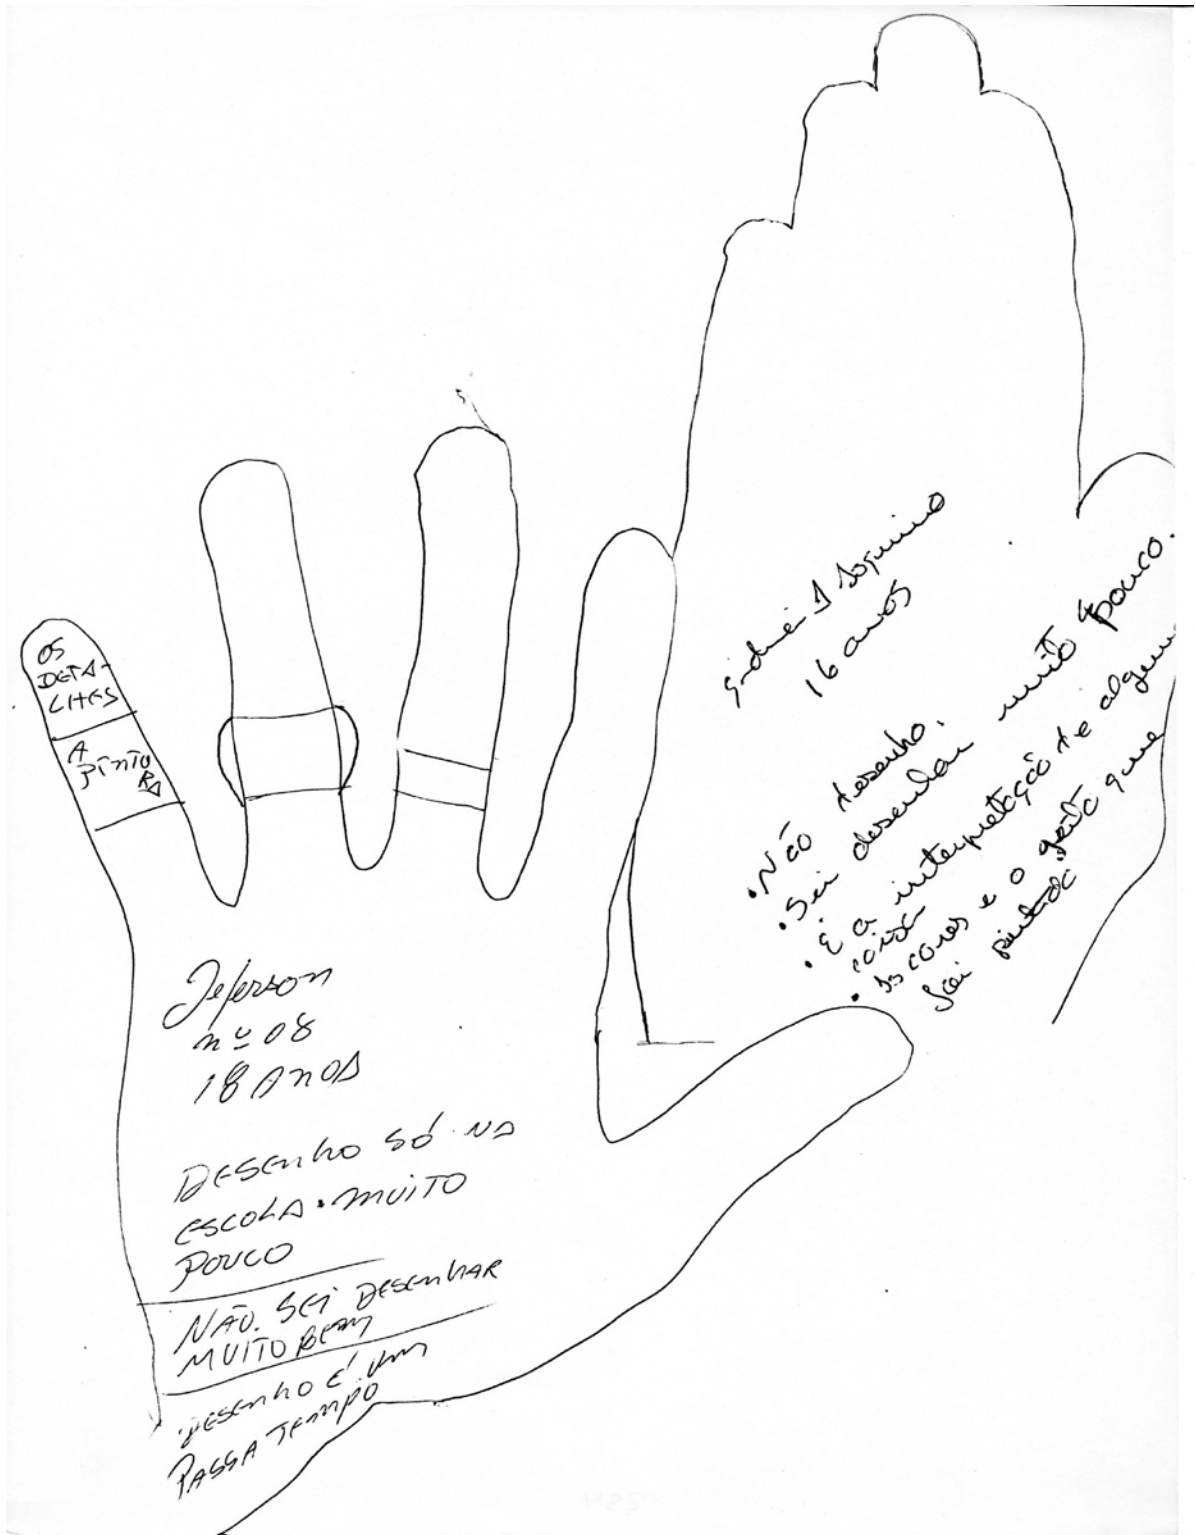 OS
DETA-
LHES
A
PINTU
RA
Jeferson
nº 08
18 ANOS
DESENHO SÓ NA
ESCOLA. MUITO
POUCO
NÃO. SEI DESENHAR
MUITO BEM
DESENHO É UM
PASSA TEMPO
16 anos
• Não desenho.
• Sei desenhar muito pouco.
• É a interpretação de alguma
coisa
• As cores e o jeito que
foi pintado